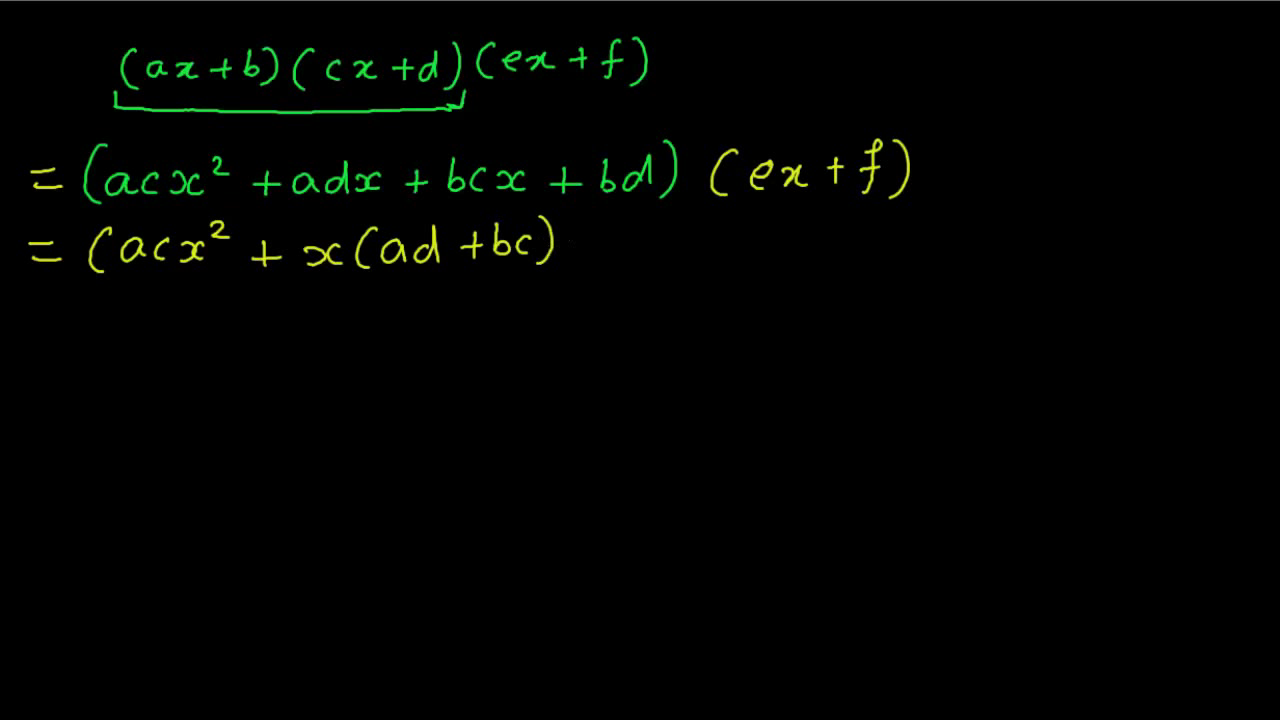 (ax+b)(cx+d)(ex+f)
= (acx² + adx + bcx + bd) (ex + f)
= (acx² + x(ad + bc)